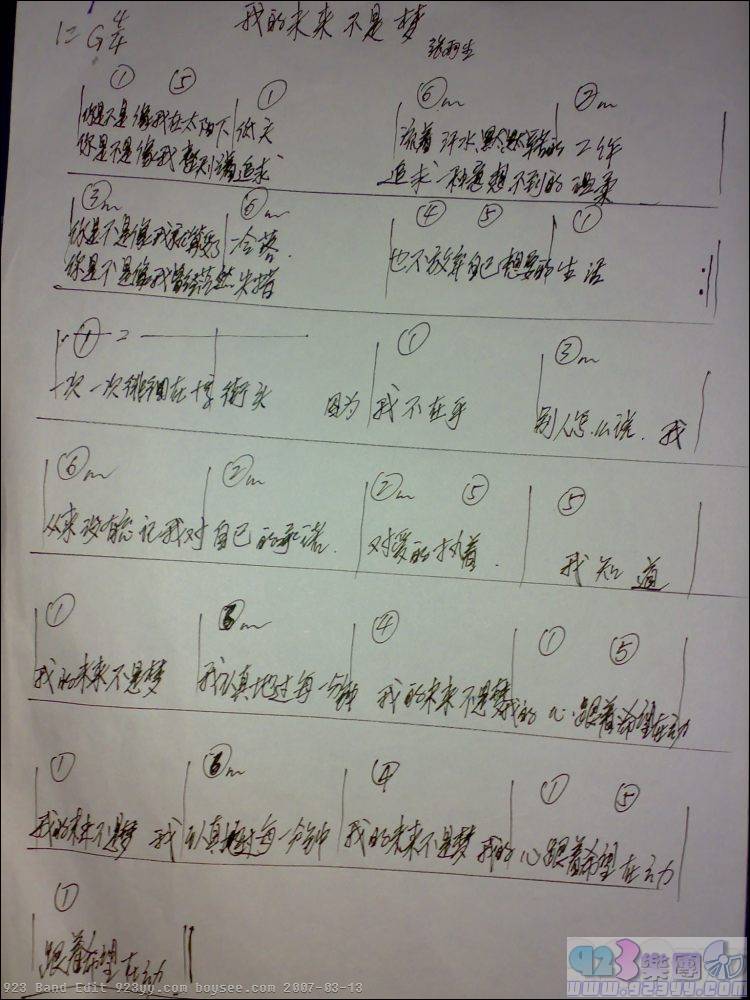 1=G 4/4 我的未来不是梦
张雨生
① ⑤ ① ⑥m ②m
你是不是像我在太阳下 低头 流着汗水默默辛苦的工作
你是不是像我整天忙着追求 追求一种意想不到的温柔
③m ⑥m ④ ⑤ ①
你是不是像我就算受了冷落 也不放弃自己想要的生活
你是不是像我曾经茫然失措
① 2 ① ③m
一次一次徘徊在十字街头 因为 我不在乎 别人怎么说. 我
⑥m ②m ②m ⑤ ⑤
从来没有忘记我对自己的承诺. 对爱的执着. 我知道
① ③m ④ ① ⑤
我的未来不是梦 我认真地过每一分钟 我的未来不是梦 我的心跟着希望在动
① ③m ④ ① ⑤
我的未来不是梦 我认真地过每一分钟 我的未来不是梦 我的心跟着希望在动
①
跟着希望在动
923 Band Edit 923yy.com boysee.com 2007-03-13
923樂團
www.923yy.com